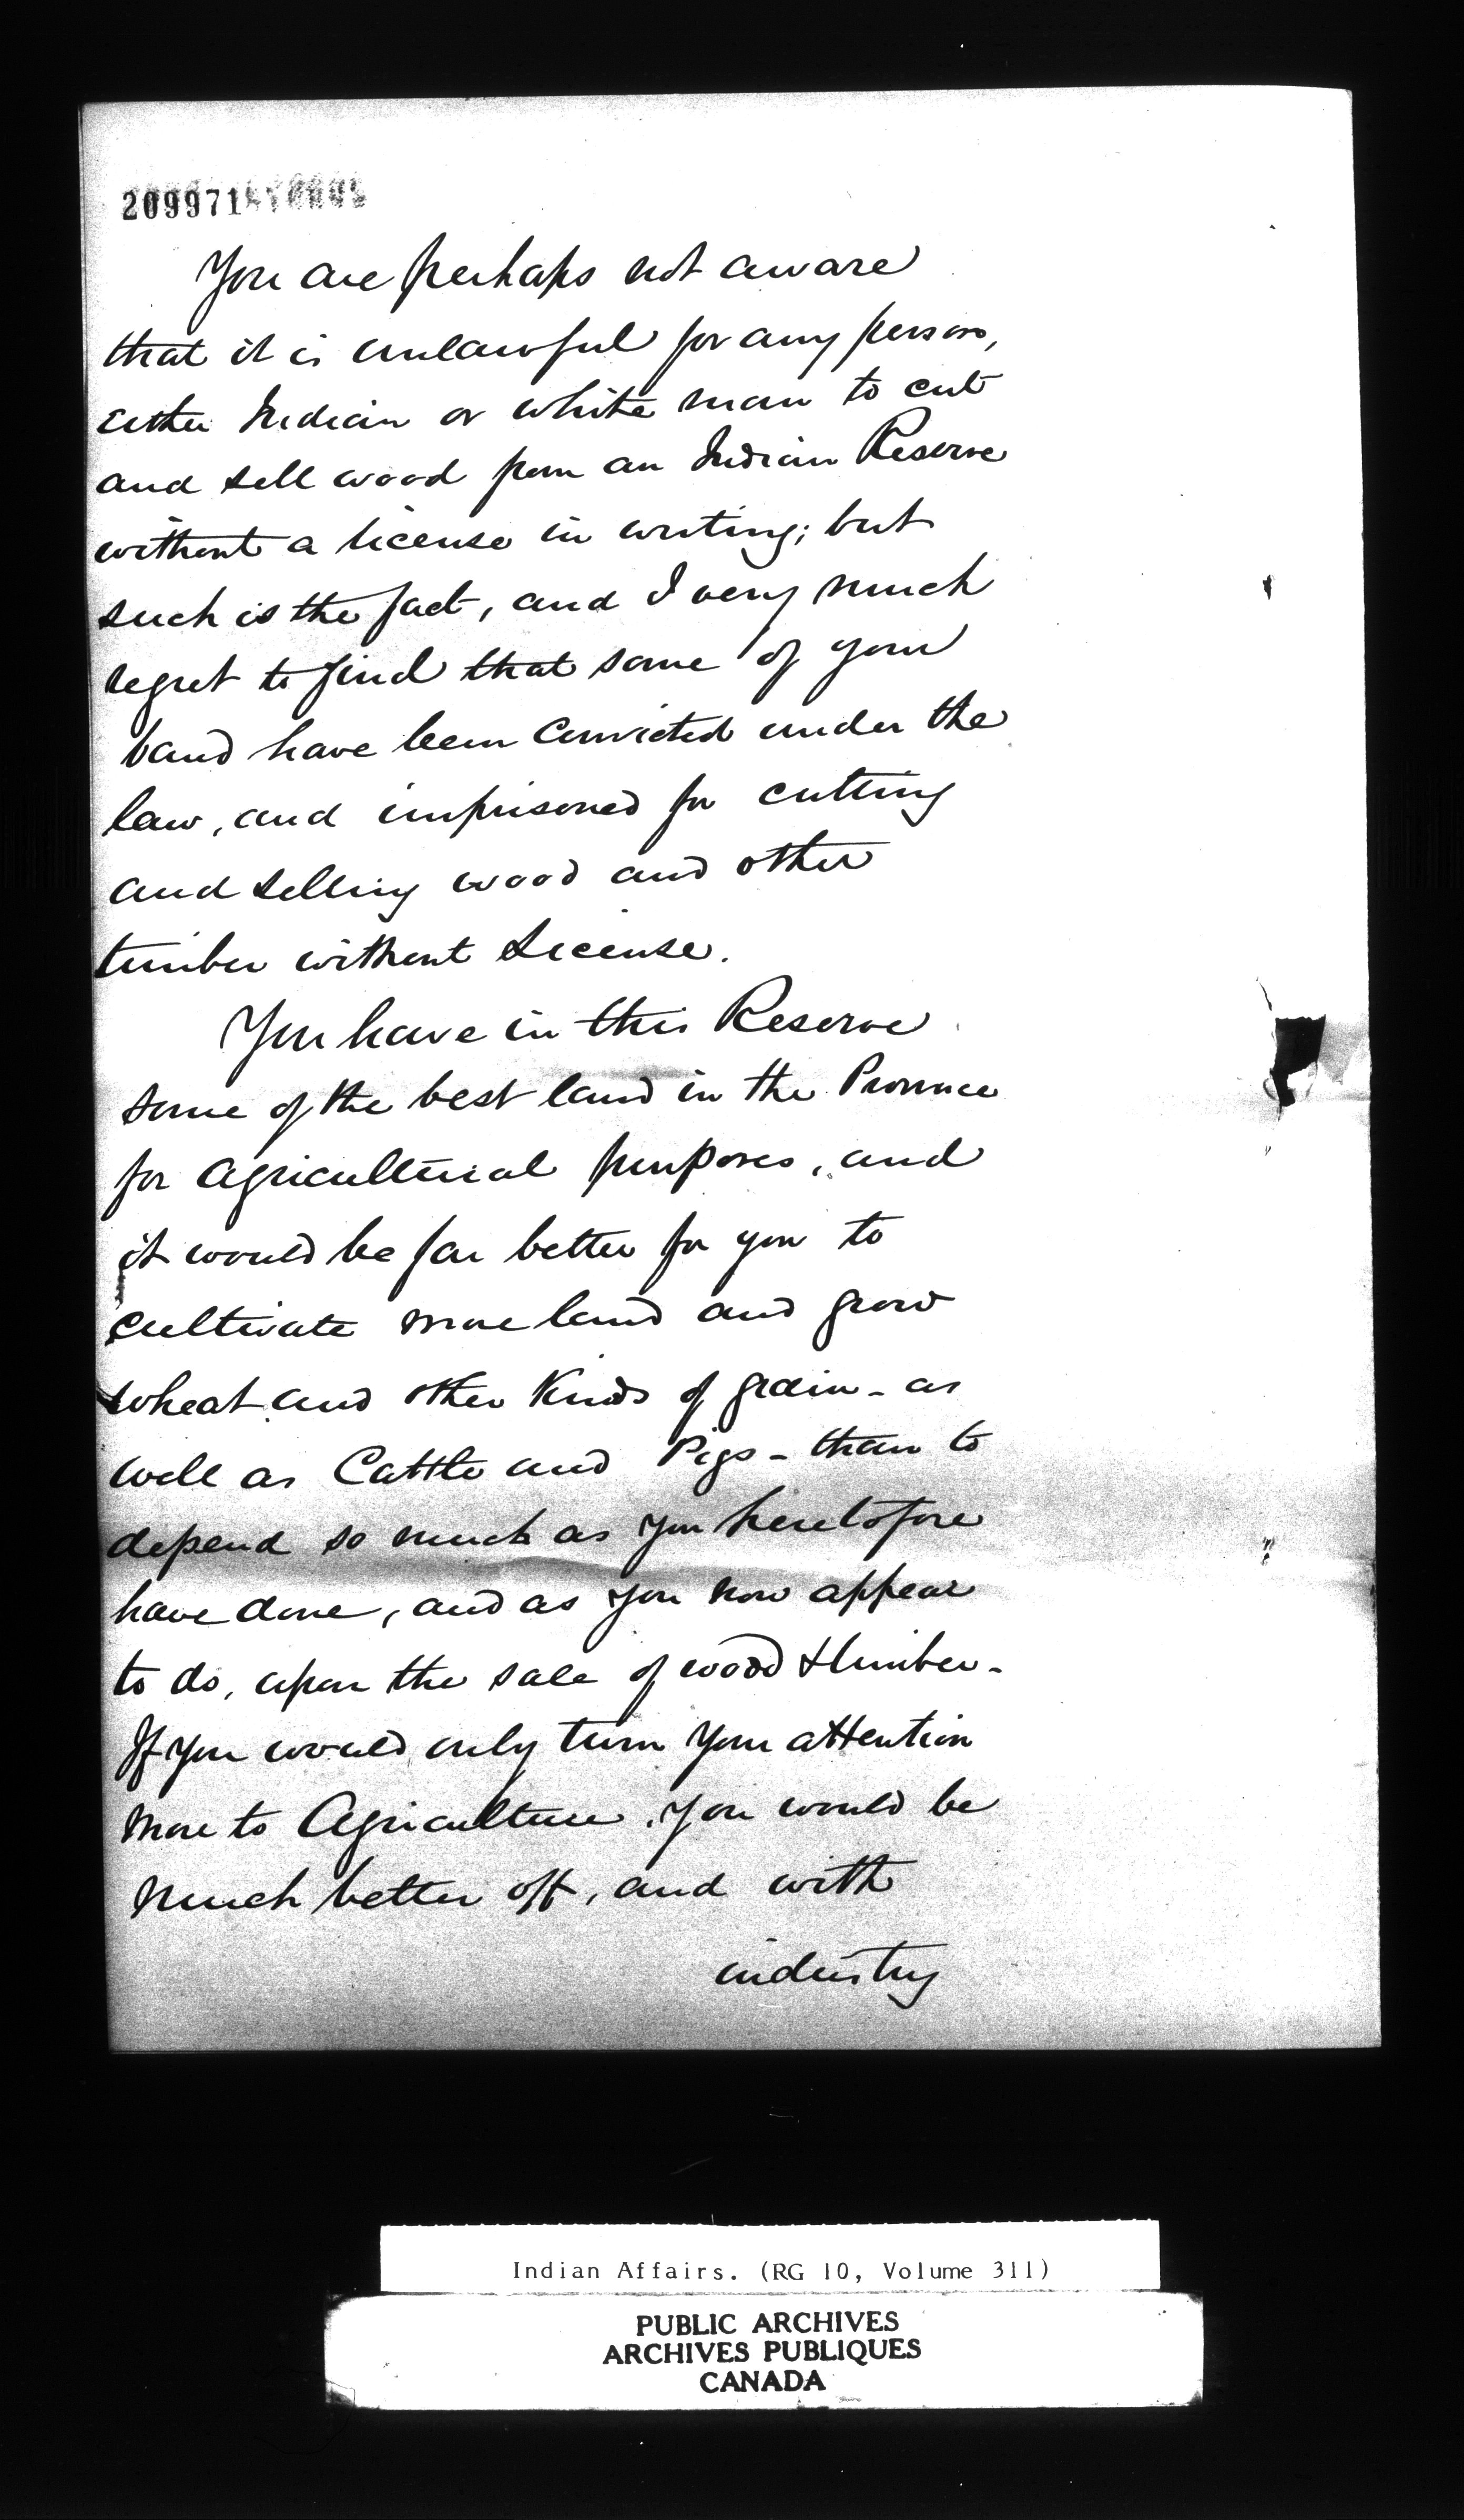 209971
You are perhaps not aware
that it is unlawful for any person,
either Indian or white man to cut
and sell wood from an Indian Reserve
without a license in writing; but
such is the fact, and I very much
regret to find that some of your
band have been convicted under the
law, and imprisoned for cutting
and selling wood and other
timber without License.
You have in this Reserve
some of the best land in the Province
for Agricultural purposes, and
it would be far better for you to
cultivate more land and grow
wheat and other Kinds of grain - as
well as Cattle and Pigs - than to
depend so much as you heretofore
have done, and as you now appear
to do, upon the sale of wood & timber.
If you would only turn your attention
more to Agriculture, you would be
much better off, and with
industry
Indian Affairs. (RG 10, Volume 311)
PUBLIC ARCHIVES
ARCHIVES PUBLIQUES
CANADA